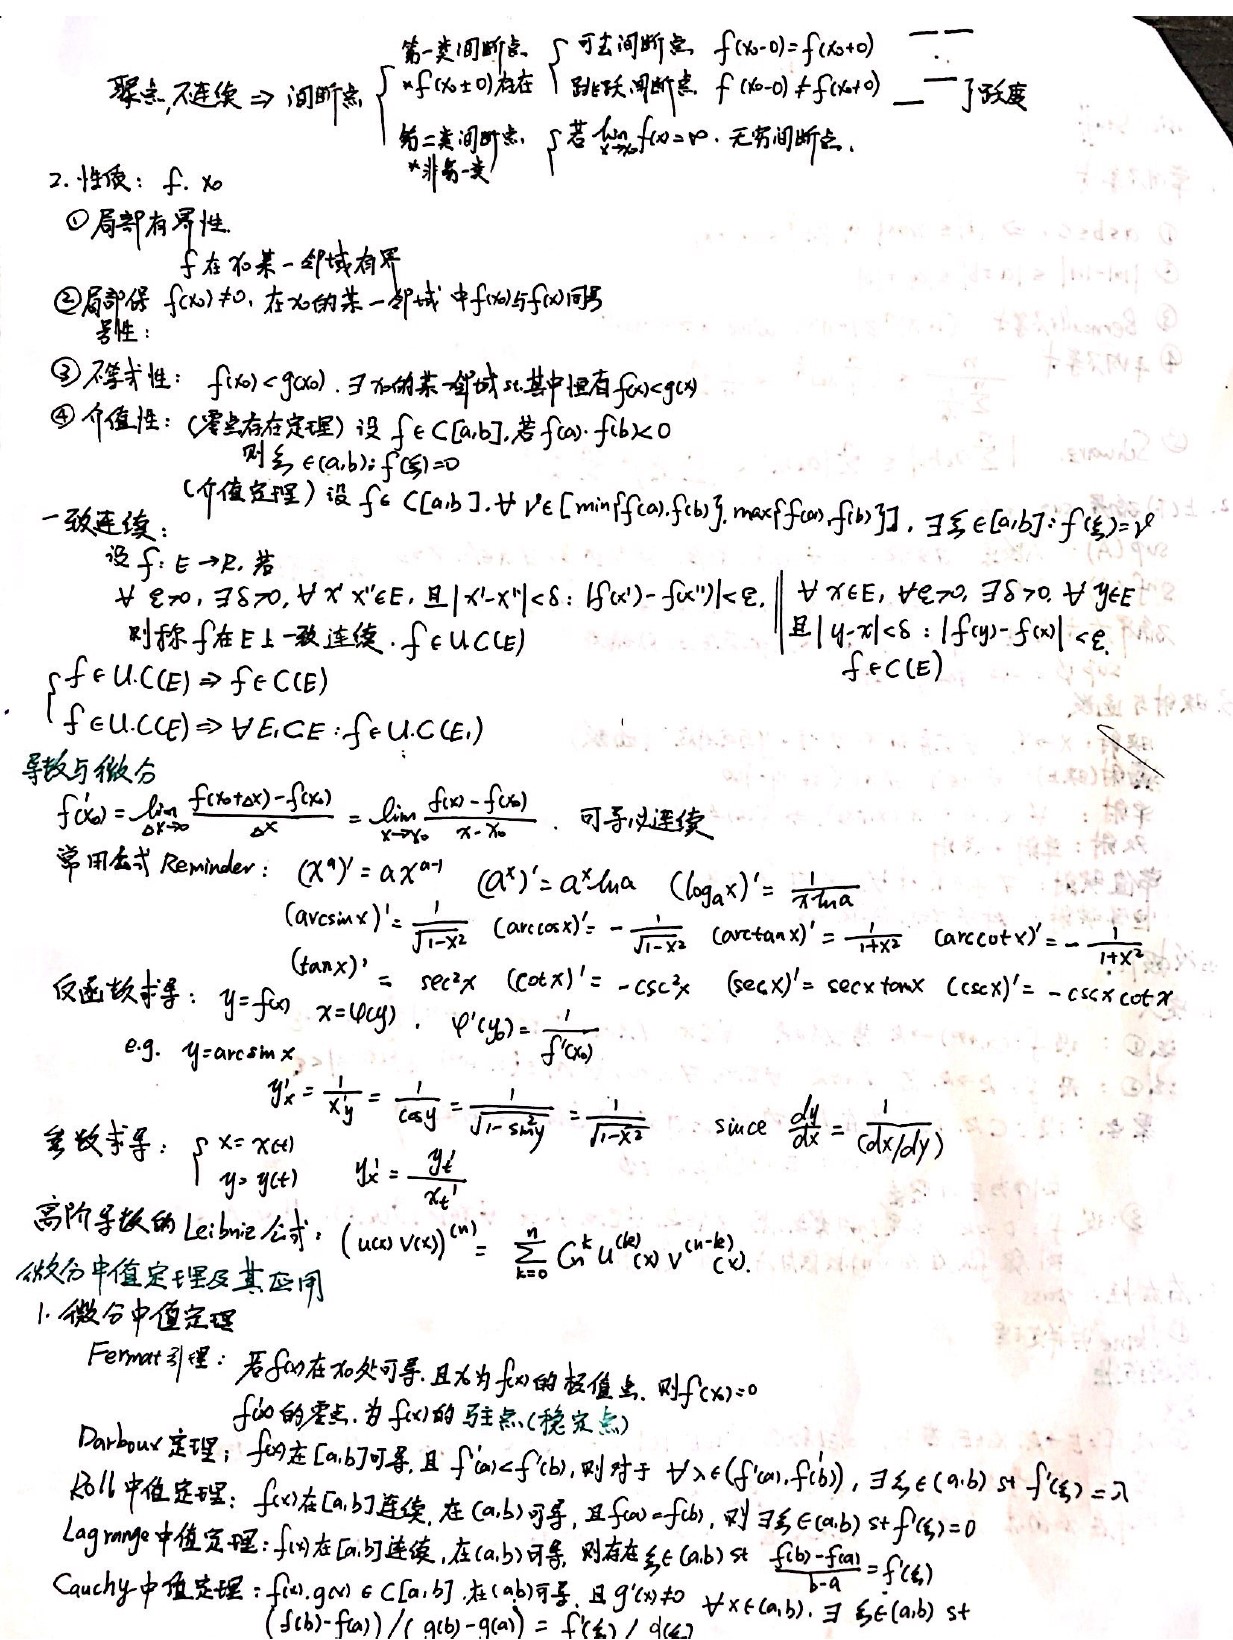 聚点,不连续 ⇒ 间断点
第一类间断点 *f(x₀±0)存在
可去间断点 f(x₀-0)=f(x₀+0)
跳跃间断点 f(x₀-0)≠f(x₀+0) }跃度
第二类间断点 *非第一类
若 lim x→x₀ f(x)=∞. 无穷间断点.
2. 性质: f. x₀
① 局部有界性.
f在x₀某一邻域有界
②局部保 f(x₀)≠0, 在x₀的某一邻域中f(x₀)与f(x)同号
号性:
③ 不等式性: f(x₀)<g(x₀). ∃ x₀的某一邻域 st.其中恒有f(x)<g(x)
④ 介值性: (零点存在定理) 设 f∈C[a,b],若f(a)·f(b)<0
则ξ∈(a,b): f(ξ)=0
(介值定理) 设 f∈C[a,b]. ∀ r∈[min{f(a),f(b)}, max{f(a),f(b)}], ∃ξ∈[a,b]: f(ξ)=r
一致连续:
设 f: E→R. 若
∀ ε>0, ∃δ>0, ∀ x' x''∈E, 且|x'-x''|<δ: |f(x')-f(x'')|<ε. ‖ ∀ x∈E, ∀ε>0, ∃δ>0, ∀ y∈E
则称 f在E上一致连续. f∈U.C(E) 且|y-x|<δ: |f(y)-f(x)|<ε.
f∈C(E)
f∈U.C(E) ⇒ f∈C(E)
f∈U.C(E) ⇒ ∀E₁⊂E: f∈U.C(E₁)
导数与微分
f'(x₀)= lim Δx→0 (f(x₀+Δx)-f(x₀))/Δx = lim x→x₀ (f(x)-f(x₀))/(x-x₀). 可导必连续
常用公式 Reminder: (xᵃ)'=axᵃ⁻¹ (aˣ)'=aˣlna (logₐx)'=1/(xlna)
(arcsinx)'=1/√(1-x²) (arccosx)'=-1/√(1-x²) (arctanx)'=1/(1+x²) (arccotx)'=-1/(1+x²)
(tanx)'= sec²x (cotx)'=-csc²x (secx)'=secxtanx (cscx)'=-cscxcotx
反函数求导: y=f(x) x=φ(y). φ'(y₀)=1/f'(x₀)
e.g. y=arcsinx
y'ₓ=1/x'y=1/cosy=1/√(1-sin²y)=1/√(1-x²) since dy/dx=1/(dx/dy)
参数求导: { x=x(t) y=y(t) y'ₓ=yₜ'/xₜ'
高阶导数的Leibniz公式: (u(x)v(x))⁽ⁿ⁾= ∑ k=0 n Cₙᵏ u⁽ᵏ⁾(x) v⁽ⁿ⁻ᵏ⁾(x).
微分中值定理及其应用
1. 微分中值定理
Fermat引理: 若f(x)在x₀处可导. 且x₀为f(x)的极值点. 则f'(x₀)=0
f'(x)的零点.为f(x)的驻点.(稳定点)
Darboux定理: f(x)在[a,b]可导,且f'(a)<f'(b),则对于 ∀λ∈(f'(a),f'(b)), ∃ξ∈(a,b) st f'(ξ)=λ
Roll中值定理: f(x)在[a,b]连续,在(a,b)可导,且f(a)=f(b), 则∃ξ∈(a,b) st f'(ξ)=0
Lagrange中值定理: f(x)在[a,b]连续,在(a,b)可导, 则存在ξ∈(a,b) st (f(b)-f(a))/(b-a)=f'(ξ)
Cauchy中值定理: f(x).g(x)∈C[a,b].在(a,b)可导. 且g'(x)≠0 ∀x∈(a,b). ∃ ξ∈(a,b) st
(f(b)-f(a))/(g(b)-g(a)) = f'(ξ)/g'(ξ)